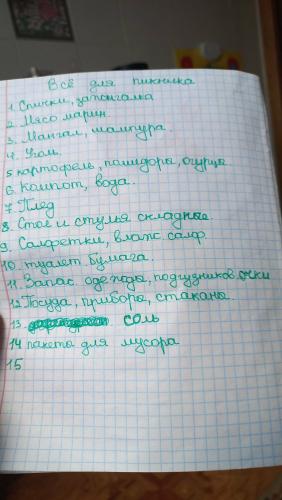 Всё для пикника
1. Спички, запалгалка
2. Мясо марин.
3. Мангал, шампура.
4. Угли.
5. картофель, помидоры, огурцы
6. Компот, вода.
7. Плед
8. Стол и стулья складные.
9. Салфетки, влаж. салф
10. туалет. бумага.
11. Запас. одежды, подгузников. очки
12. Посуда, приборы, стаканы
13. соль
14 пакеты для мусора
15